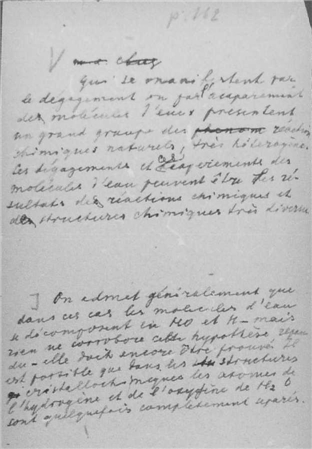 p. 262
V
Qui se manifestent par
le dégagement ou par l'acaparement
des molécules d'eau présentent
un grand groupe des phenom reaction
chimiques naturels, très hétérogène.
Les dégagements et ces
molécules d'eau peuvent être des ré-
sultats des réactions chimiques et
des structures chimiques très diverses
] On admet généralement que
dans ces cas les molecules d'eau
se décomposent en HO et H – mais
rien ne corrobore cette hypothèse
du – elle doit encore être prouvée. Il
est possible que dans les structures
cristallochimiques les atomes de
l'hydrogène et de l'oxygène de H2O
sont quelquefois complètement separés.